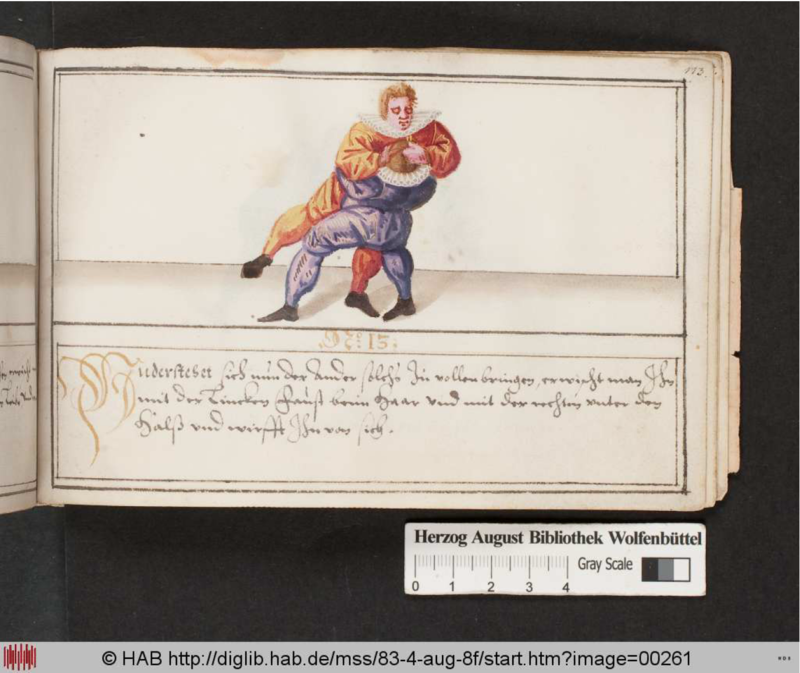 113.
No: 15.
Widersteset sich nun der Ander solchs zu vollenbringen, erwischt man Ihn
mit der Lincken Faust beim Haar vnd mit der rechten vnter den
Halß vnd wirfft Ihn von sich.
Herzog August Bibliothek Wolfenbüttel
0 1 2 3 4 Gray Scale
© HAB http://diglib.hab.de/mss/83-4-aug-8f/start.htm?image=00261